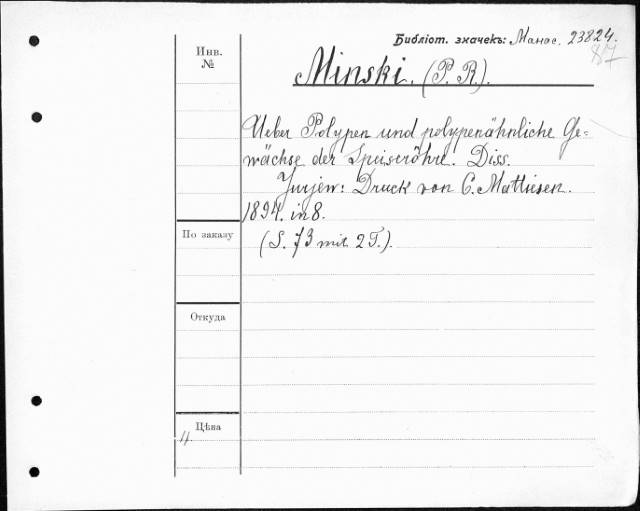 Библіот. значекъ: Манас. 23824.
87
Инв.
№
Minski. (P. R).
Ueber Polypen und polypenähnliche Ge-
wächse der Speiseröhre. Diss.
Jurjew: Druck von C. Mattiesen.
1894. in 8.
По заказу
(S. 73 mit 2 T.).
Откуда
Цѣна